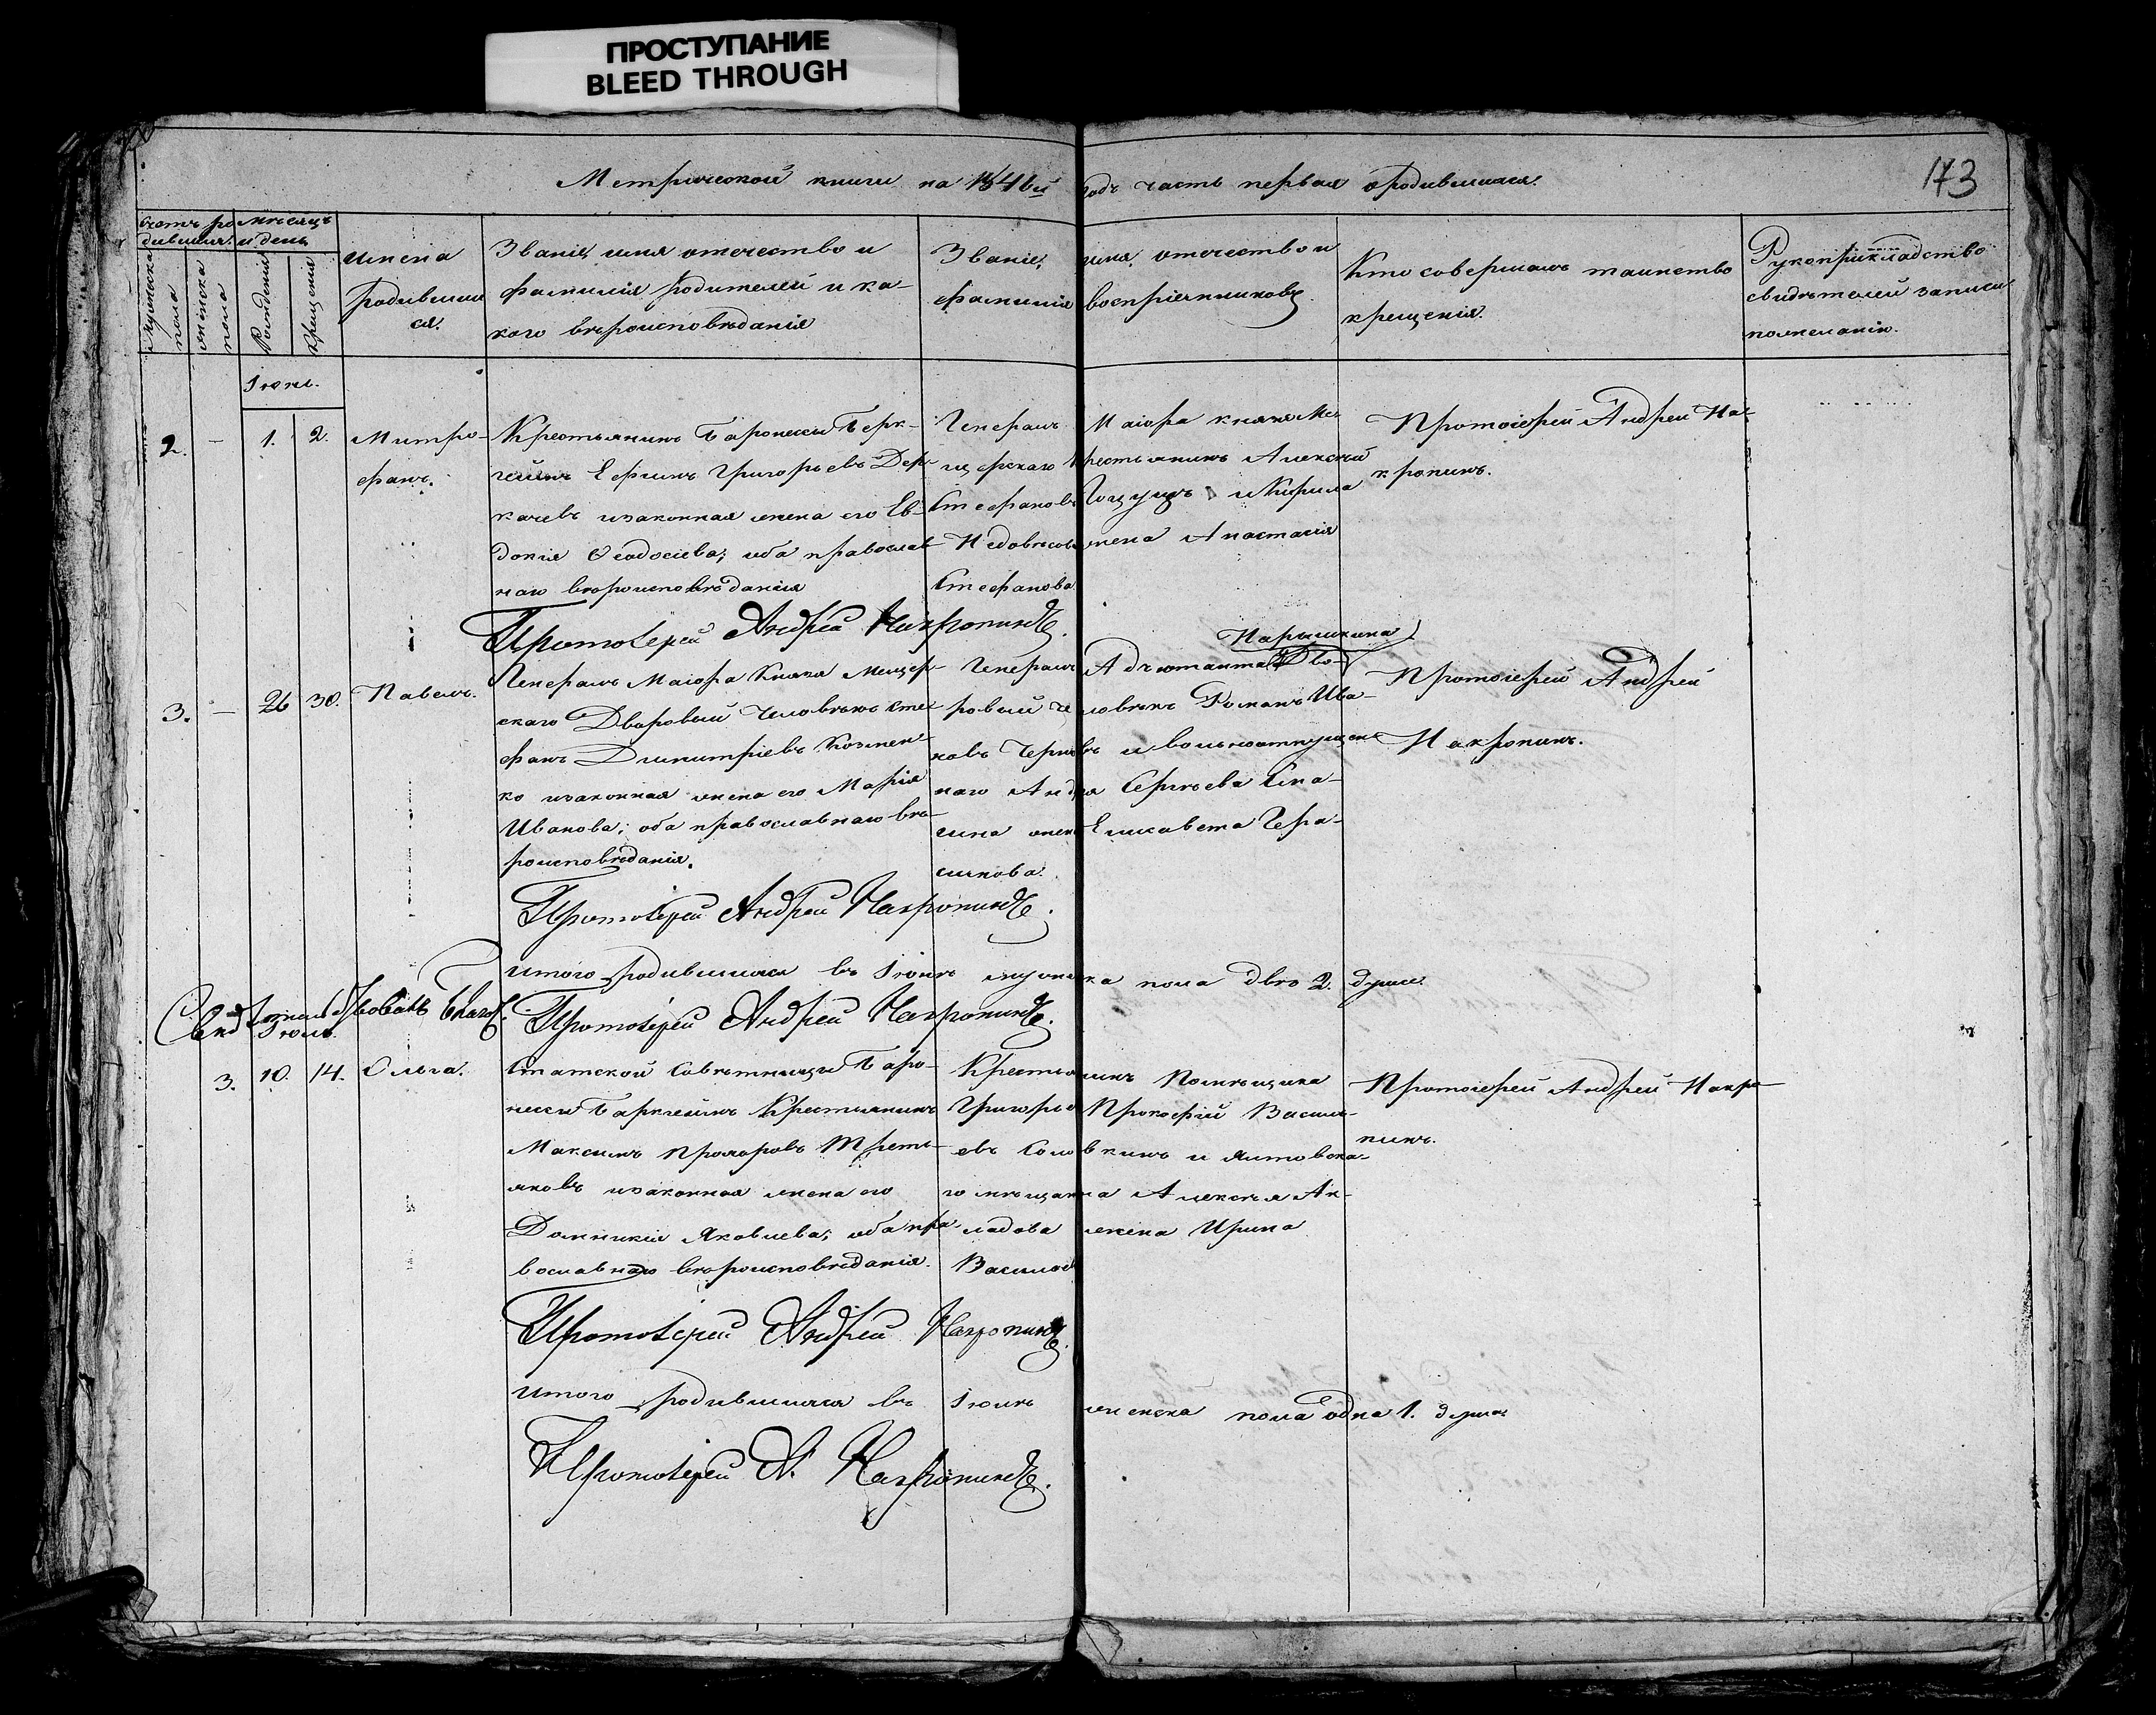 ПРОСТУПАНИЕ
BLEED THROUGH
173
Метрической книги на 1841й годъ часть первая о родившихся.
Счетъ родившихся
мѣсяцъ и день
Мужеска пола
Женска пола
Рожденія
Крещенія
Имена
родивших
ся.
Званіе, имя отечество и
фамилія родителей и ка-
кого вѣроисповѣданія
Званіе, имя, отечество и
фамилія воспріемниковъ.
Кто совершалъ таинство
крещенія.
Рукоприкладство
свидѣтелей записи
по желанію.
Іюнь.
2.
-
1.
2.
Митро-
фанъ.
Крестьянинъ Баронессы Берк-
Ефимъ Григорьевъ Дер-
качевъ и законная жена его Ев-
докія Ѳеодосіева; оба православ
наго вѣроисповѣданія
Генералъ Маіора князя Ме-
щерскаго крестьянинъ Алексѣй
Стефановъ и Кирила
жена Анастасія
Стефанова
Протоіерей Андрей На-
кропинъ.
Протоіерей Андрей Накропинъ.
3.
-
26
30.
Павелъ.
Генералъ Маіора Князя Мещер-
скаго Дворовый Человѣкъ Сте
фанъ Димитріевъ Козмен-
ко и законная жена его Марія
Иванова; оба православнаго вѣ-
роисповѣданія.
Нарышкина
Генералъ Адъютанта Дво-
ровый человѣкъ Романъ Ива-
новъ Черновъ и вольноотпущен-
наго Андрея Сергѣева
жена Елисавета Гера-
симова.
Протоіерей Андрей
Накропинъ.
Протоіерей Андрей Накропинъ.
Итого родившихся въ Іюнѣ мужеска пола двѣ 2. души.
Протоіерей Андрей Накропинъ.
Іюль.
3.
10.
14.
Ольга.
Статской Совѣтницы Баро-
нессы Барклеинъ Крестьянинъ
Максимъ Прохоровъ Треть-
яковъ и законная жена его
Домникія Яковлева; оба пра
вославнаго вѣроисповѣданія.
Крестьянинъ Помѣщика
Григорьева Прокофій Василь-
евъ Соловкинъ и Ялтовска-
го мѣщанина Алексѣя Ак-
ладова жена Ирина
Василова
Протоіерей Андрей Накро-
пинъ.
Протоіерей Андрей Накропинъ.
Итого родившихся въ Іюлѣ женска пола одна 1. душа.
Протоіерей А. Накропинъ.